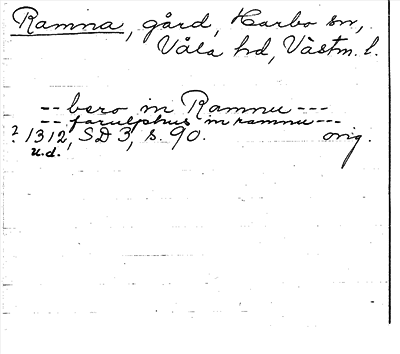 Ramna, gård, Harbo sn,
Våla hd, Västm. l.
-- bero in Ramnu ---
-- farulphus in ramnu ---
? 1312, SD 3, s. 90. orig.
u.d.